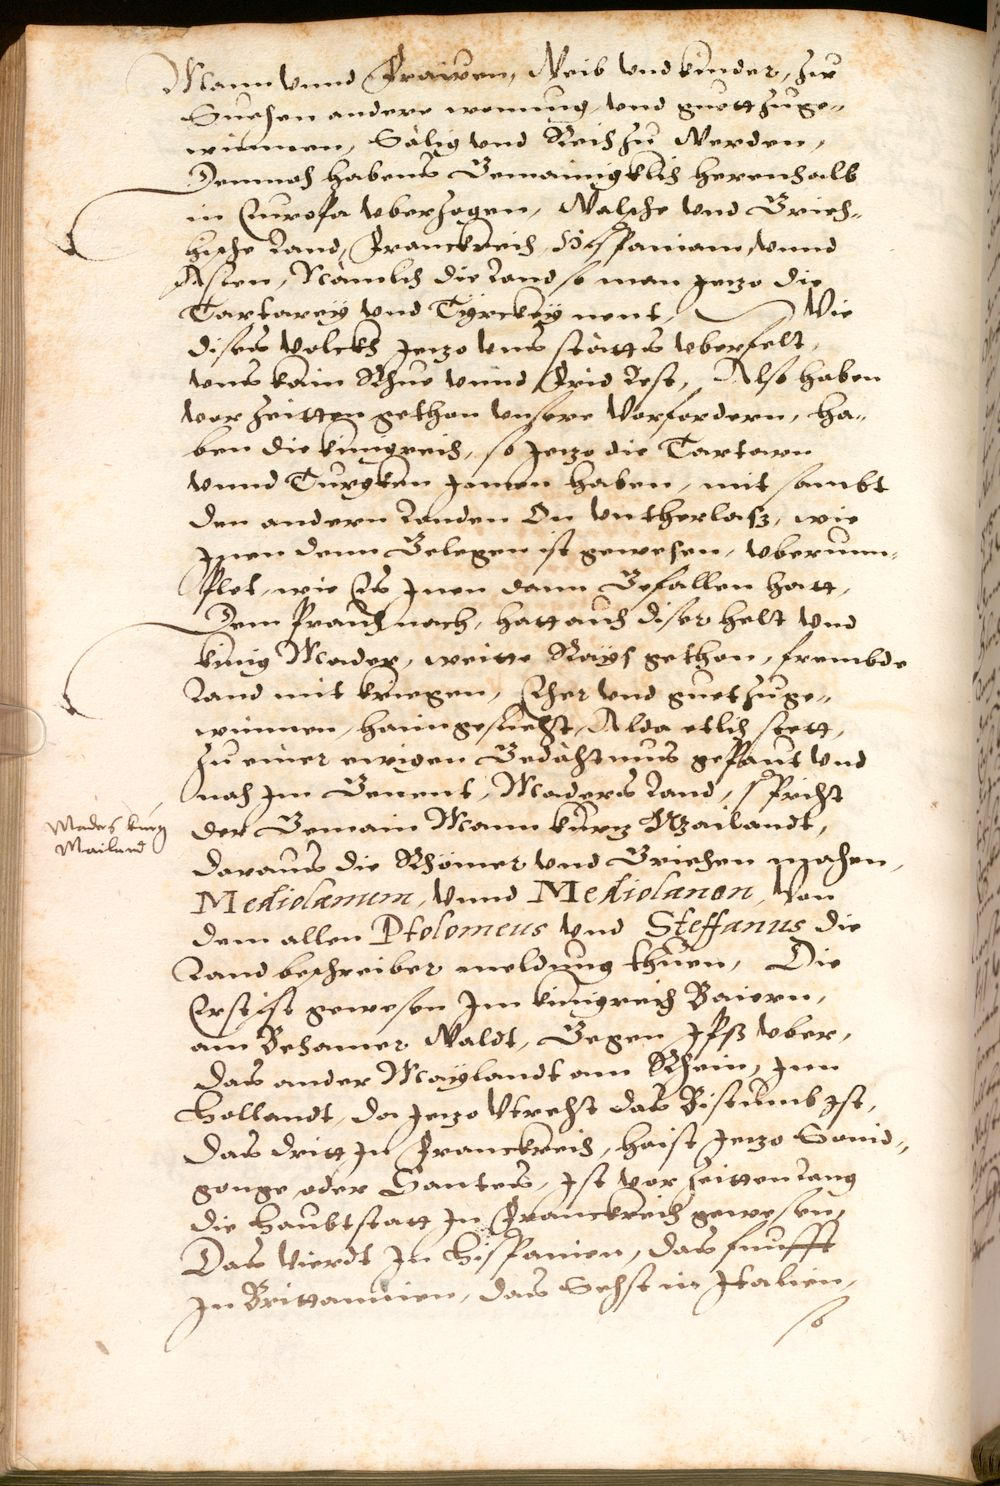 Mann vnnd Frawen, Weib vnd kinder, zu
Suechen andere wonung, vnd guett zuge-
winnen, Sälig vnd Reich zu Werden,
Demnach habens Gemainigklich herenhalb
in Europa vberzogen, Walsche vnd Griech-
hische Land, Franckreich, Hispaniam, vnnd
Asien, Nämlich die Land so man Jenzo die
Tartarey vnd Tÿrckeÿ nent, Wie
dises volckh Jenzo vns stätts vberfelt,
vns kain Rhue vnnd Frid Lest, Also haben
vor zeitten gethon vnsere Vorfordern, ha-
ben die kinigreich, so Jenzo die Tartern
vnnd Turgken Jnnen haben, mit sambt
den andern Landen On vntherlaß, wie
Jnen denn Gelegen ist gewesen, vberum-
plet, wie Es Jnen dann Gefallen hatt,
Dem prauch nach, hatt auch diser helt vnd
kinig Mader, weitte Rays gethon, frembde
Land mit kriegen, Eher vnd guet zuge-
winnen, haimgesuecht, Alda etlich stett,
zu einer ewigen Gedächtnus gepaut vnd
nach Jm Genent, Maders Land, spricht
der Gemain Mann kurz Mailandt,
Mades kurz
Mailand
daraus die Rhömer vnd Griechen machen,
Mediolanum, vnnd Mediolanon, Von
dem allen Ptolomeus vnd Steffanus die
Land beschreiber meldung thuen, Die
Erst ist gewesen Jm kinigreich Baiern,
am Behamer Waldt, Gegen Jpß vber,
das ander Maylandt am Rhein, Jnn
Hollandt, da Jenzo Vtrecht das Bistumb Jst,
das dritt Jn Franckreich, haist Jenzo
gonge oder Santes, Jst vor zeitten Lang
die Haubtstatt Jn Franckreich gewesen,
Das Vierdt Jn Hispanien, das funfft
Jn Brittannien, das Sechst in Italien,
so